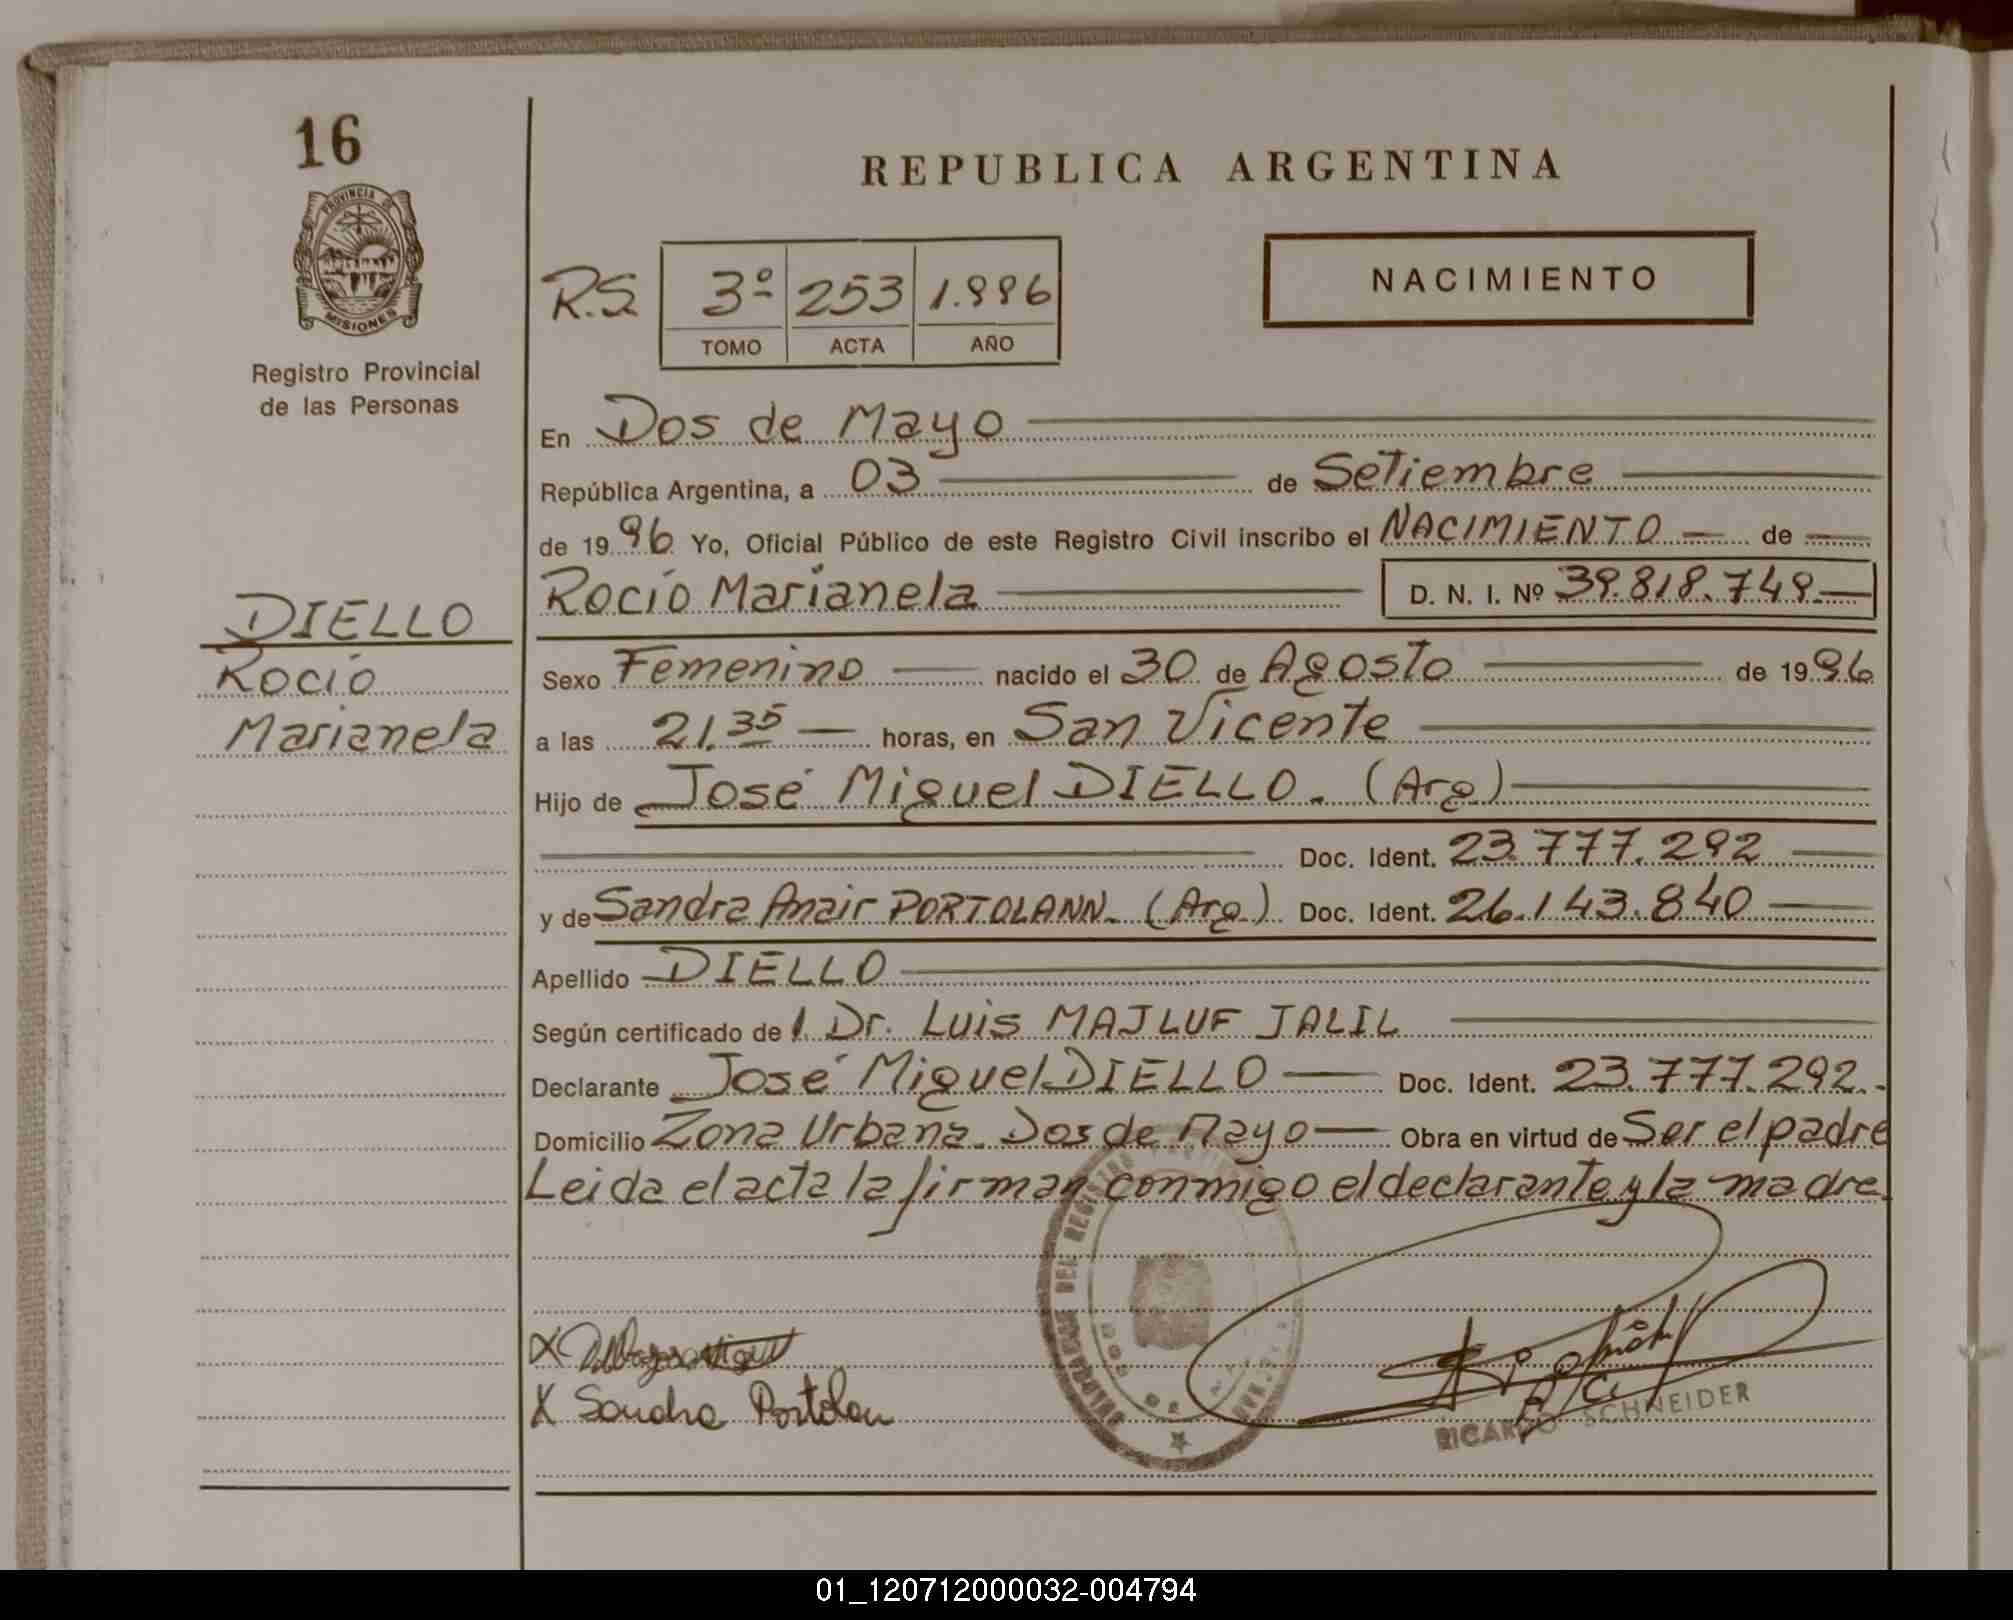 16
PROVINCIA DE
MISIONES
Registro Provincial
de las Personas
DIELLO
Rocío
Marianela
REPUBLICA ARGENTINA
NACIMIENTO
R.S. 3º 253 1.996
TOMO ACTA AÑO
En Dos de Mayo
República Argentina, a 03 de Setiembre
de 1996 Yo, Oficial Público de este Registro Civil inscribo el NACIMIENTO de
Rocío Marianela D. N. I. Nº 39.818.749.
Sexo Femenino nacido el 30 de Agosto de 1996
a las 21.35 horas, en San Vicente
Hijo de José Miguel DIELLO. (Arg)
Doc. Ident. 23.777.292
y de Sandra Anair PORTOLANN. (Arg.) Doc. Ident. 26.143.840
Apellido DIELLO
Según certificado de l. Dr. Luis MAJLUF JALIL
Declarante José Miguel DIELLO Doc. Ident. 23.777.292.-
Domicilio Zona Urbana. Dos de Mayo Obra en virtud de Ser el padre
Leida el acta la firman conmigo el declarante y la madre.
X
X Sandra Portolan
DEL REGISTRO
RICARDO SCHNEIDER
01_120712000032-004794